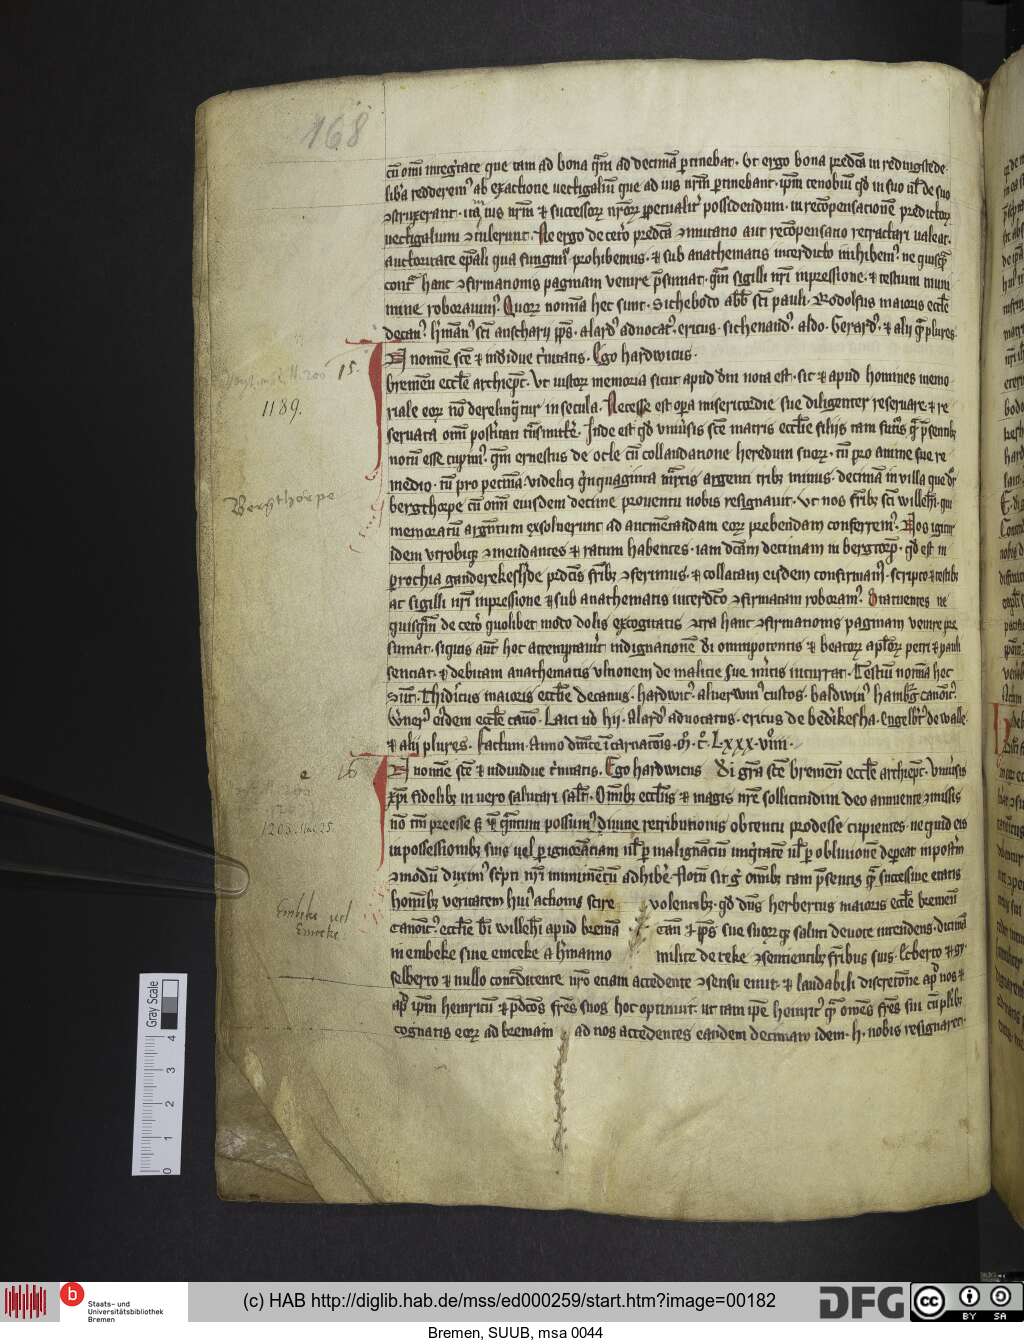 168
cū om̄i integ̃tate que tam ad bona q̃m ad decimā ꝑtinebat. Ut ergo bona pred̄cā in redingstede
lib̃a redderem᷒ ab exactione uectigaliū que ad ius nr̃m ꝑtinebant. ip̄m cenobiū qd̄ in suo ul̃ de suo
ↄstruxerant. ius nr̃m ⁊ successoꝝ nr̃oꝝ ꝑpetualit̃ possidendum. in recōpensationē predictoꝝ
uectigalium ↄtulerunt. Ne ergo de cet̃o pred̄cā ↄmutatio aut recōpensatio retractari ualeat.
auctoritate ep̄ali qua fungim᷒ prohibemus. ⁊ sub anathematis interdicto inhibem᷒. ne quisq̃
contͣ hanc ↄfirmationis paginam uenire p̃sumat. q̃m sigilli nr̃i inpressione. ⁊ testium muni
mine roborauim᷒. Quoꝝ nomīa hec sunt. Sichebodo abb̄ sc̄i pauli. Rodolfus maioris eccl̄e
decan᷒. h̓man᷒ sc̄i anscharij pp̄s. alard᷒ aduocat᷒. ericus. sichenand᷒. aldo. Gerard᷒. ⁊ alij q̃ plures.
15.
In nomīe sc̄e ⁊ indiuidue t̓nitatis. Ego hardwicus.
1189.
bremēn eccl̄e archiep̄c. Ut iustoꝝ memoria sicut apud dn̄m nota est. sic ⁊ apud homines memo
riale eoꝝ nō derelinq̃tur in secula. Necesse est oꝑa misericordie sue diligenter reseruare. ⁊ re
seruata om̄i post̓itati tn̄smitt̃e. Inde est qd̄ uniu̓sis sc̄e matris eccl̄ie filijs tam fut̃is q̃ p̃sentibꝫ
notū esse cupim᷒. q̃m ernestus de ocle cū collaudatione heredum suoꝝ. tū pro anime sue re
medio. tū pro pecunia. uidelicꝫ q̃nquaginta m̃rcis argenti tribꝫ minus. decimā in uilla que dr̃
Bergthorpe
bergthorpe cū om̄i eiusdem decime prouentu nobis resignauit. Ut nos fr̃ibꝫ sc̄i willehadi. qui
memoratū arg̃ntum exsoluerunt ad aucmentandam eoꝝ prebendam conferrem᷒. Nos igitur
idem utrobiqꝫ ↄmendantes ⁊ ratum habentes. iam dc̄am decimam in bergtorp̄. qd̄ est in
ꝑrochia ganderekesh̓de pred̄cis fr̃ibꝫ ↄferimus. ⁊ collatam eisdem confirmam᷒. scripto ⁊ testibꝫ
ac sigilli nr̃i inpressione ⁊ sub anathematis interdc̄o ↄfirmatam roboram᷒. Statuentes ne
quisq̃m de cet̃o quolibet modo dolis excogitatis ↄtra hanc ↄfirmationis paginam uenire pre
sumat. siquis aūt hoc attemptauit̃ indignationē di omnipotentis ⁊ beatoꝝ apl̄oꝝ petri ⁊ pauli
sentiat. ⁊ debitam anathematis ultionem de malicie sue m̓itis incurrat. Testiū nomīa hec
sūt. Thid̓icus maioris eccl̄ie decanus. hardwic᷒. aluerwin᷒ custos. baldwin᷒ hamb̃g canoīc᷒.
W̓ner᷒ ei᷒dem eccl̄e canō. Laici ūo hij. Alard᷒ aduocatus. ericus de bed̓ikesha. engelb̃t᷒ de walle
⁊ alij plures. Factum. Anno dn̄ice īcarnac̄ois. ᴍ̊. c̊. Lxxx. viiij.
16
In nomīe sc̄e ⁊ indiuidue t̓nitatis. Ego hardwicus di gr̃a sc̄e bremēn eccl̄e archiep̄c. Uniu̓sis
1203. Mai 25.
xp̄i fidelibꝫ in uero salutari salt̃. Om̄ibꝫ eccl̄iis ⁊ magis nr̃e sollicitudini deo annuente ↄmissis
nō tm̄ preesse s̃ ⁊ q̃ntum possum᷒ diuine retributionis obtentu prodesse cupientes. ne quid eis
in possessionibꝫ suis uel ꝑ ignorāciam ul̃ ꝑ malignāciū iniq̃tatē ul̃ ꝑ obliuionē depereat inpost̓m
ↄmodū duxim᷒ sc̃pti nr̃i munimētū adhib̓e. Notū sit g̃ om̄ibꝫ tam p̃sentis q̃ successiue etatis
Embeke vel
Emceke.
hom̄ibꝫ ueritatem hui᷒ actionis scire uolentibꝫ. qd̄ dn̄s herbertus maioris eccl̄e bremēn
canoīc᷒. eccl̄ie b̄i willeh̄i apud bremā can̄ ⁊ pp̄s sue suoꝝqꝫ saluti deuote intendens. decimā
in embeke siue emceke a h̓manno milite de teke ↄsentientibꝫ fr̃ibus suis. Ecberto ⁊ gy
selberto ⁊ nullo contrad̓icente nr̃o etiam accedente ↄsensu emit. ⁊ laudabili discretiōne apd̄ nos ⁊
apd̄ ip̄m heinricū ⁊ p̃dc̄os fr̃es suos hoc optinuit. ut tam ip̄e heinric᷒ q̃ om̄es fr̃es sui cū plibꝫ
cognatis eoꝝ ad bremam ad nos accedentes eandem decimam idem. h. nobis resignaret.
Gray Scale
4
3
2
1
0
Staats- und
Universitätsbibliothek
Bremen
(c) HAB http://diglib.hab.de/mss/ed000259/start.htm?image=00182
DFG
cc
BY SA
Bremen, SUUB, msa 0044